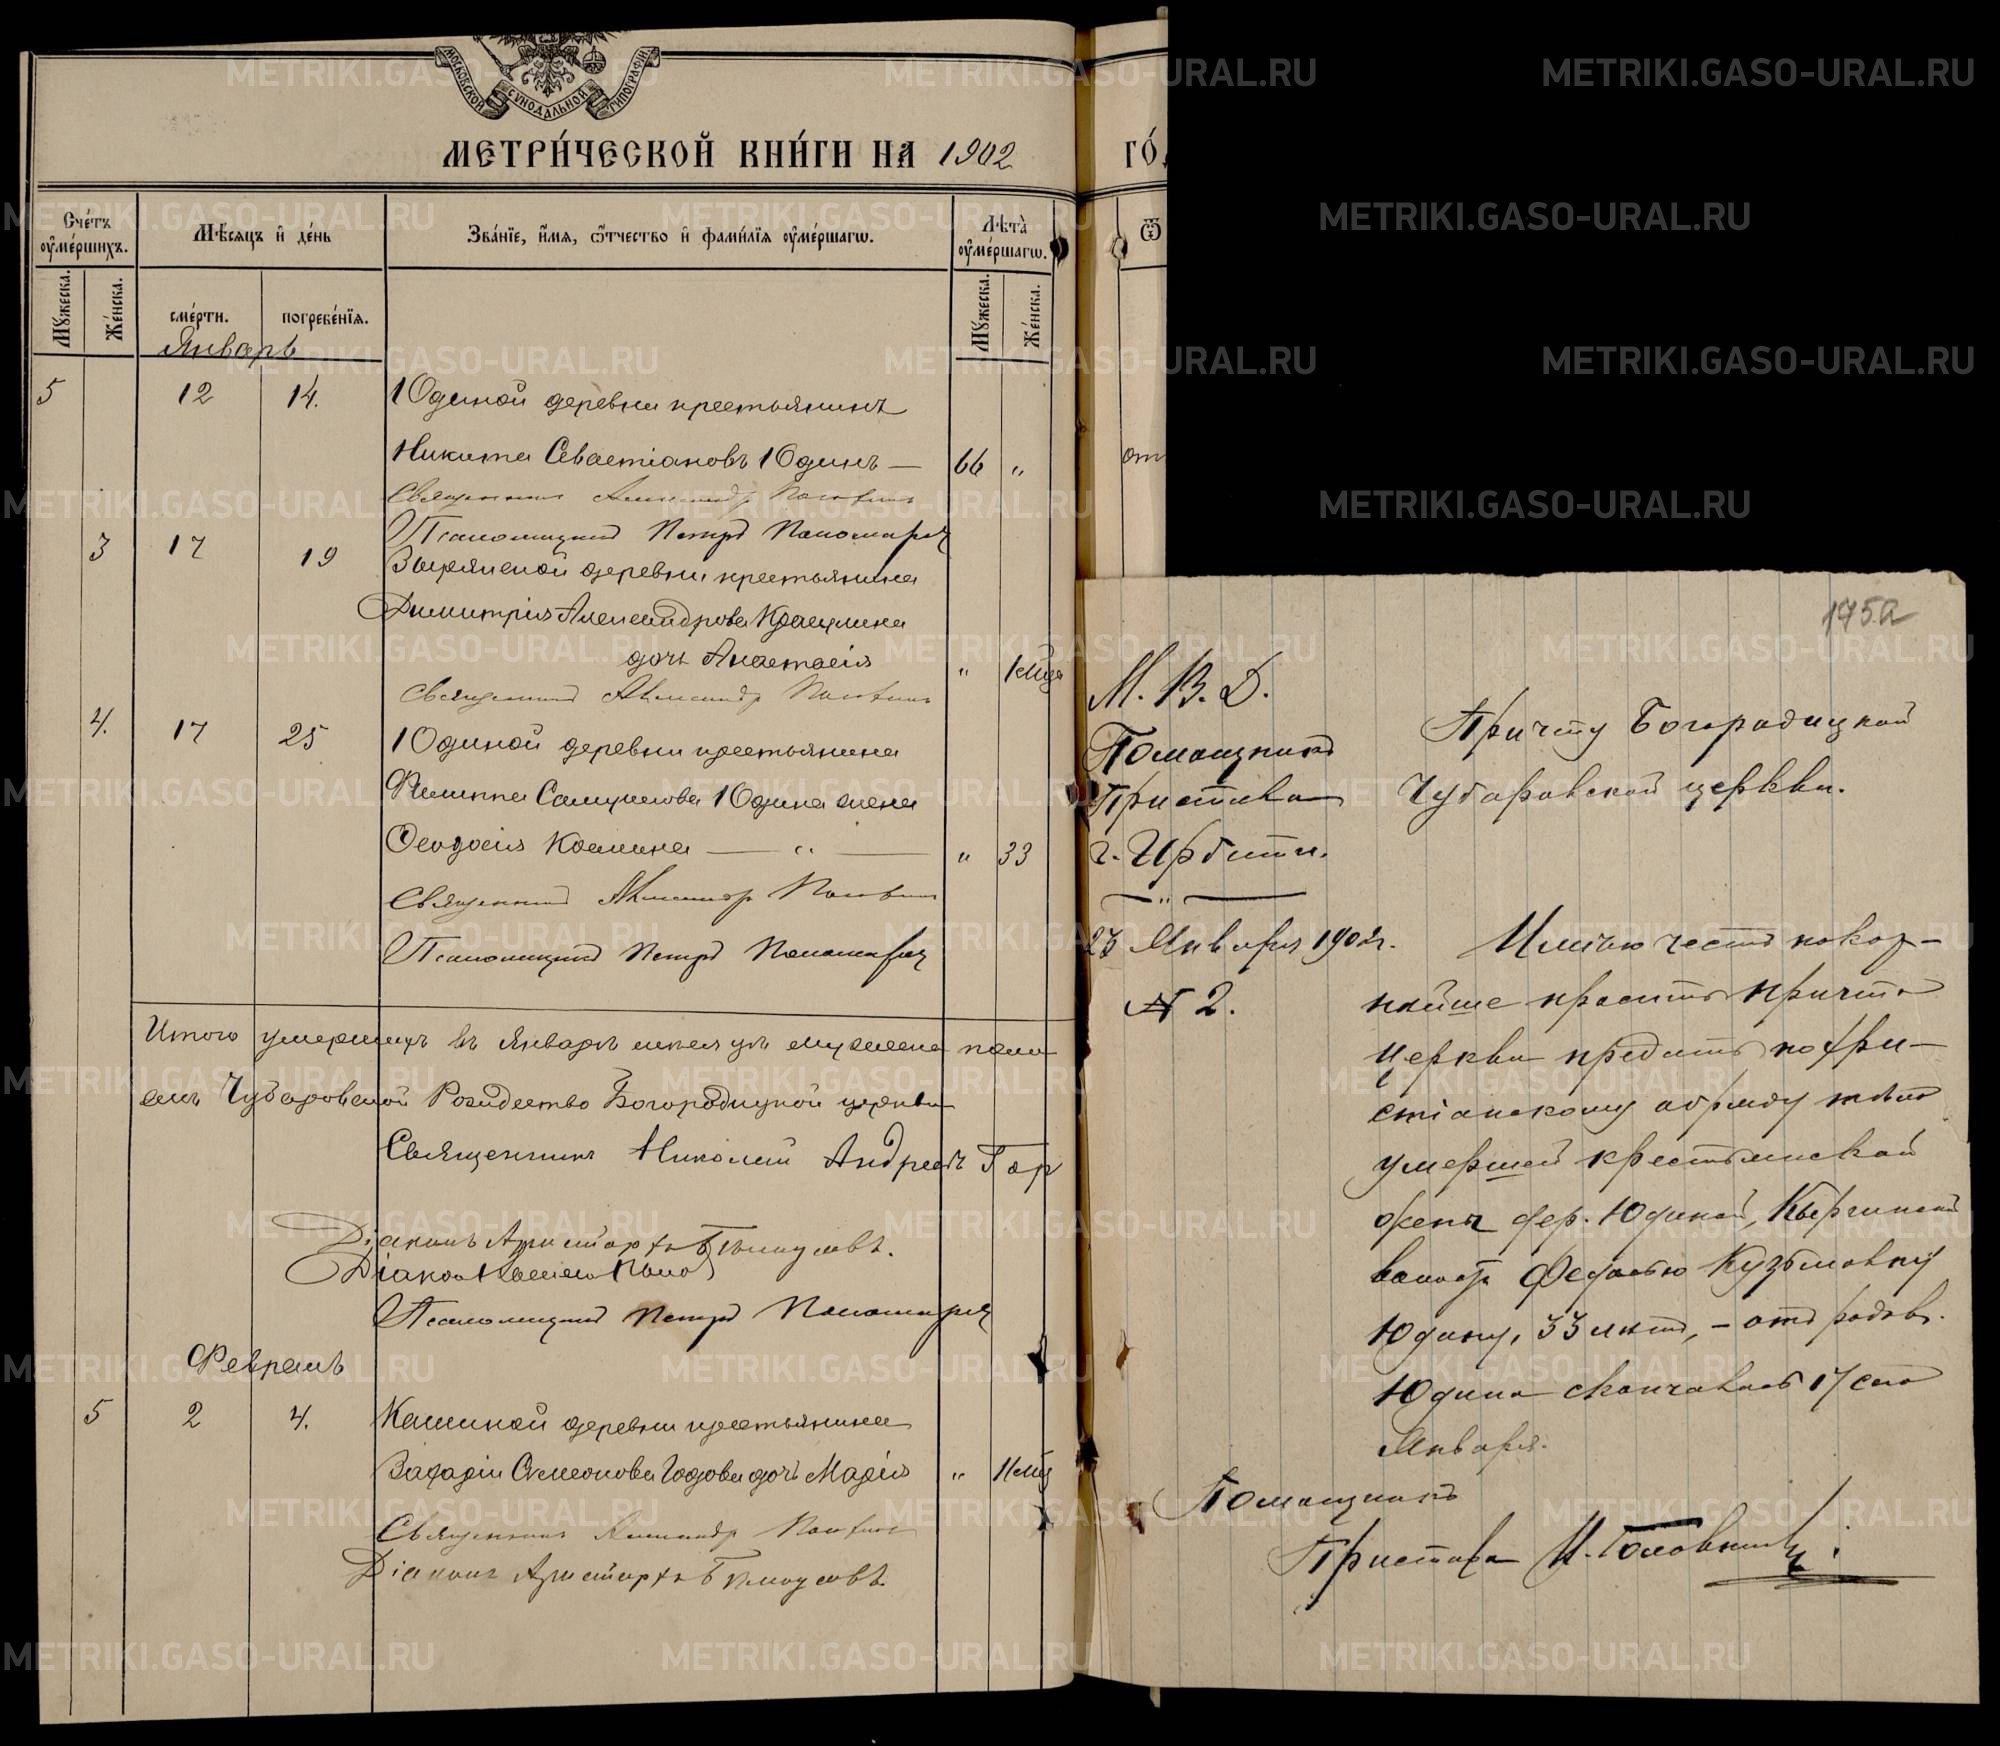 МОСКОВСКОЙ СУНОДАЛЬНОЙ ТИПОГРАФІИ
МЕТРИ́ЧЕСКОЙ КНИ́ГИ НА 1902
ГО́
Сче́тъ оу҆ме́ршихъ.
Мѣ́сяцъ и҆ де́нь
Зва́нїе, и҆́мя, ѻ҆́тчество и҆ фами́лїя оу҆ме́ршагѡ.
Лѣта̀ оу҆ме́ршагѡ.
Ѿ
Мꙋ́жеска.
Же́нска.
сме́рти.
погребе́нїя.
Мꙋ́жеска.
Же́нска.
Январь
5 12 14. Юдиной деревни крестьянинъ
Никита Севастіановъ Юдинъ — 66 "
от
Священникъ Александръ
Псаломщикъ Петръ Пономаревъ
3 17 19 Зырянской деревни крестьянина
Димитрія Александрова Красулина
дочь Анастасія " 1 мѣся
Священникъ Александръ
4. 17 25 Юдиной деревни крестьянина
Филиппа Самуилова Юдина жена
Ѳеодосія Косьмина — " — " 33
Священникъ Александръ
Псаломщикъ Петръ Пономаревъ
Итого умершихъ въ Январѣ мѣсяцѣ мужеска
Чубаровской Рождество Богородицкой церкви
Священникъ Николай Андреевъ Гор
Діаконъ Аристархъ
Діаконъ
Псаломщикъ Петръ Пономаревъ
Февраль
5 2 4. Кашиной деревни крестьянина
Захаріи Симеонова Годова дочь Марія "
Священникъ Александръ
Діаконъ Аристархъ
175а
М. В. Д.
Помощникъ
Пристава
г. Ирбити.
— " —
23 Января 1902 г.
№ 2.
Причту Богородицкой
Чубаровской церкви.
Имѣю честь покор-
нѣйше просить причтъ
церкви предать по хри-
стіанскому обряду тѣло
умершей крестьянской
жены дер. Юдиной, Кыргинской
волости Федосью Кузьмовну
Юдину, 33 лѣтъ, – отъ родов.
Юдина скончалась 17 сего
Января.
Помощникъ
Пристава И. Головкинъ
METRIKI.GASO-URAL.RU